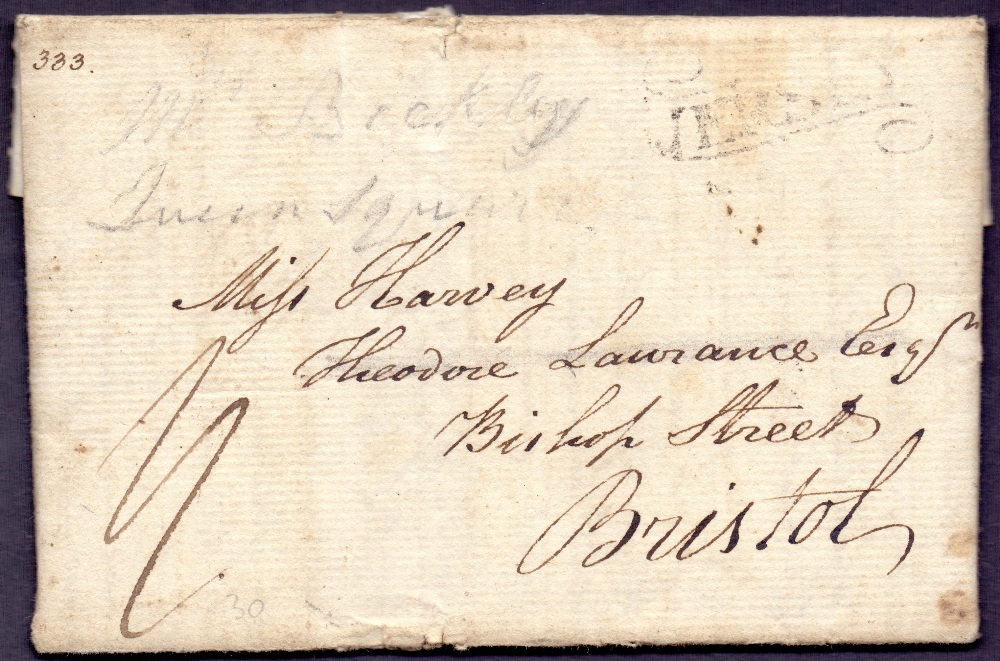 333.
Mrs Bickley
Queen Square
Miſs Harvey
Theodore Lawrance Esqr
Bishop Street
Bristol
30